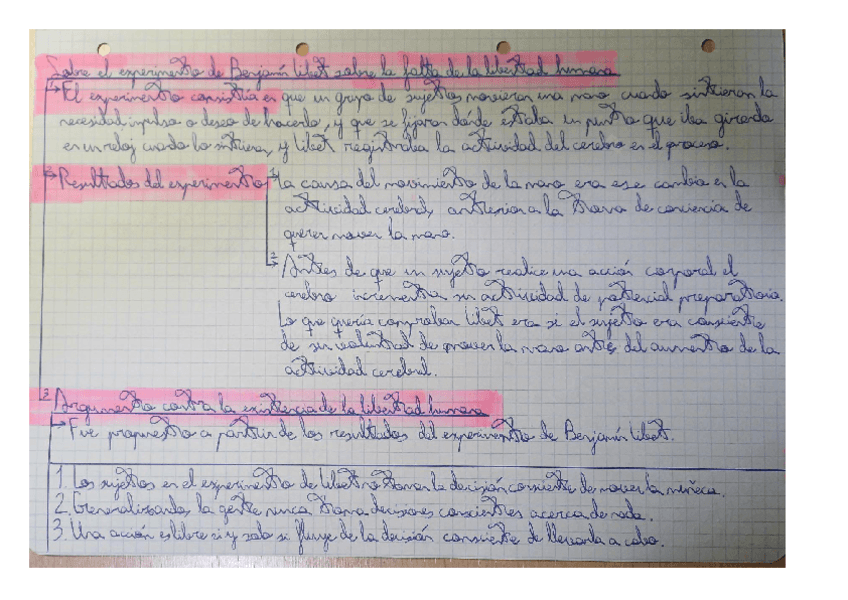 Sobre el experimento de Benjamín Libet sobre la falta de la libertad humana
El experimento consistía en que un grupo de sujetos movieran una mano cuando sintieran la
necesidad, impulso o deseo de hacerlo, y que se fijaran donde estaba un punto que iba girando
en un reloj cuando lo sintieran, y Libet registraba la actividad del cerebro en el proceso.
Resultados del experimento
1 La causa del movimiento de la mano era ese cambio en la
actividad cerebral, anterior a la toma de conciencia de
querer mover la mano.
2 Antes de que un sujeto realice una acción corporal el
cerebro incrementa su actividad de potencial preparatorio.
Lo que quería comprobar Libet era si el sujeto era consciente
de su voluntad de mover la mano antes del aumento de la
actividad cerebral.
Argumento contra la existencia de la libertad humana
Fue propuesto a partir de los resultados del experimento de Benjamín Libet.
1. Los sujetos en el experimento de Libet no toman la decisión consciente de mover la muñeca.
2. Generalizando, la gente nunca toma decisiones conscientes acerca de nada.
3. Una acción es libre si y solo si fluye de la decisión consciente de llevarla a cabo.